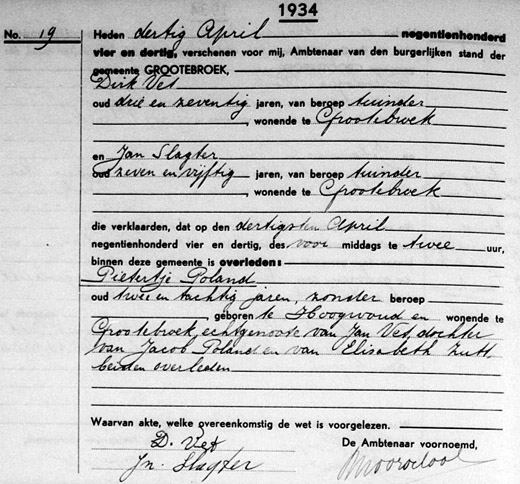 1934
No. 19 Heden dertig April negentienhonderd
vier en dertig, verschenen voor mij, Ambtenaar van den burgerlijken stand der
gemeente GROOTEBROEK,
Dirk Vet
oud drie en zeventig jaren, van beroep tuinder
, wonende te Grootebroek
en Jan Slagter
oud zeven en vijftig jaren, van beroep tuinder
, wonende te Grootebroek
die verklaarden, dat op den dertigsten April
negentienhonderd vier en dertig, des voor middags te twee uur,
binnen deze gemeente is overleden:
Pietertje Poland
oud twee en tachtig jaren, zonder beroep
, geboren te Hoogwoud en wonende te
Grootebroek, echtgenoote van Jan Vet, dochter
van Jacob Poland en van Elisabeth
beiden overleden
Waarvan akte, welke overeenkomstig de wet is voorgelezen.
D. Vet De Ambtenaar voornoemd,
Jn. Slagter